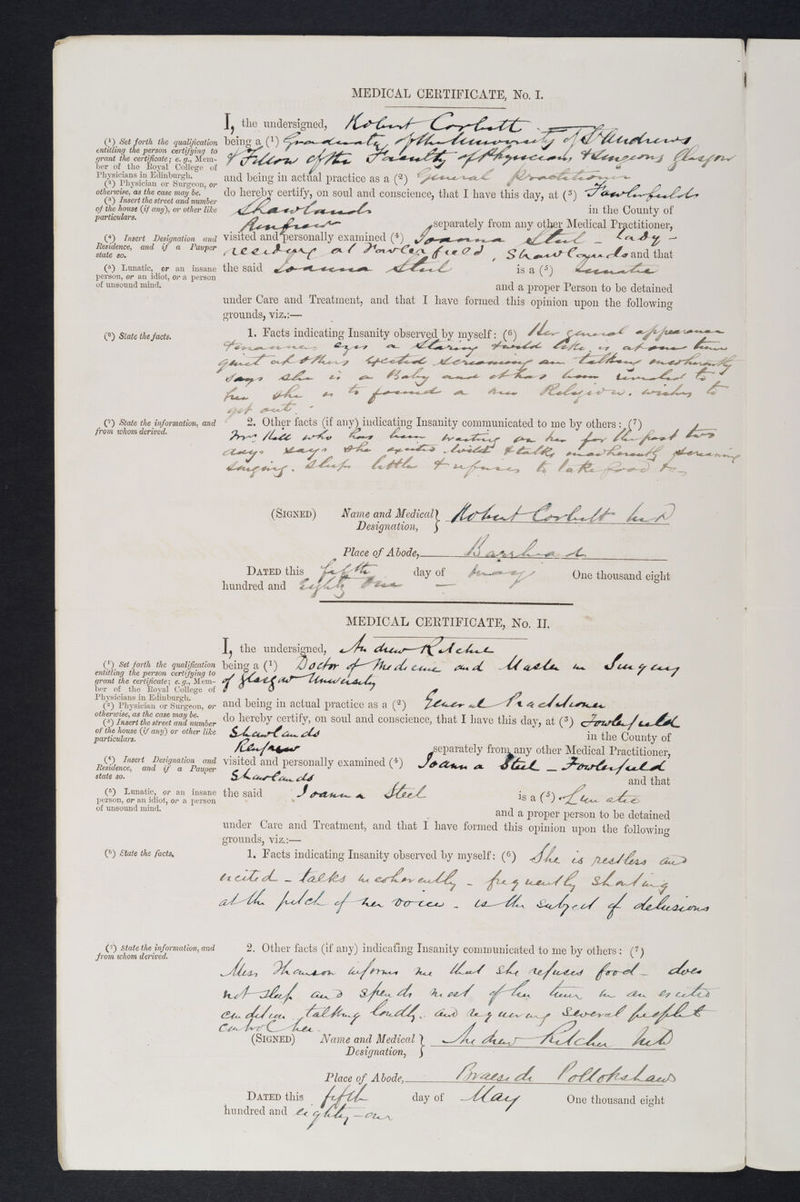 MEDICAL CERTIFICATE, No. I.
I, the undersigned, Robert Corbett
(1) Set forth the qualification entitling the person certifying to grant the certificate; e. g., Member of the Royal College of Physicians in Edinburgh.
being a (1) Graduate of the University of St Andrews
& Fellow of the Faculty of Physicians & Surgeons Glasgow
(2) Physician or Surgeon, or otherwise, as the case may be.
and being in actual practice as a (2) General Practitioner
(3) Insert the street and number of the house (if any), or other like particulars.
do hereby certify, on soul and conscience, that I have this day, at (3) Fowlerfield
Shawlands in the County of
Renfrew separately from any other Medical Practitioner,
(4) Insert Designation and Residence, and if a Pauper state so.
visited and personally examined (4) Joanna Steel - Lady -
residing at Fowlerfield, Shawlands and that
(5) Lunatic, or an insane person, or an idiot, or a person of unsound mind.
the said Joanna Steel is a (5) Lunatic
and a proper Person to be detained
under Care and Treatment, and that I have formed this opinion upon the following
grounds, viz.:—
(6) State the facts.
1. Facts indicating Insanity observed by myself: (6) Her general appearance
& manner eyes a staring & wild like, is at one time
quiet at others excited screaming and talking incoherently
Says she is a Baby and it has been revealed to
her she is to found a new Religion, wishes to
get out.
(7) State the information, and from whom derived.
2. Other facts (if any) indicating Insanity communicated to me by others: (7)
Mrs Hall who has been waiting on her for the past two
days says she excited, wild & talks incoherently screaming
singing. Sleeps little & refuses to take food
(SIGNED) Name and Medical Designation, Robert Corbett M.D
Place of Abode, Barrhead
DATED this fifth day of May One thousand eight
hundred and Eighty One
MEDICAL CERTIFICATE, No. II.
I, the undersigned, Andrew Ritchie
(1) Set forth the qualification entitling the person certifying to grant the certificate; e. g., Member of the Royal College of Physicians in Edinburgh.
being a (1) Doctor of Medicine and Master in Surgery
of Glasgow University
(2) Physician or Surgeon, or otherwise, as the case may be.
and being in actual practice as a (2) General Practitioner
(3) Insert the street and number of the house (if any) or other like particulars.
do hereby certify, on soul and conscience, that I have this day, at (3) Fowlerfield
Shawlands in the County of
Renfrew separately from any other Medical Practitioner,
(4) Insert Designation and Residence, and if a Pauper state so.
visited and personally examined (4) Joanna Steel - Fowlerfield
Shawlands and that
(5) Lunatic, or an insane person, or an idiot, or a person of unsound mind.
the said Joanna Steel is a (5) Lunatic
and a proper person to be detained
under Care and Treatment, and that I have formed this opinion upon the following
grounds, viz.:—
(6) State the facts.
1. Facts indicating Insanity observed by myself: (6) She is restless and
excited - talks incoherently - frequently shouting
at the pitch of her voice - is the subject of delusions
(7) State the information, and from whom derived.
2. Other facts (if any) indicating Insanity communicated to me by others: (7)
Miss informs me that she refuses food - does
not sleep and spends most of her time in an excited
condition, talking loudly, and requiring several people to
control her
(SIGNED) Name and Medical Designation, Andrew Ritchie M.D
Place of Abode, Braeside Pollokshaws
DATED this fifth day of May One thousand eight
hundred and eighty-one